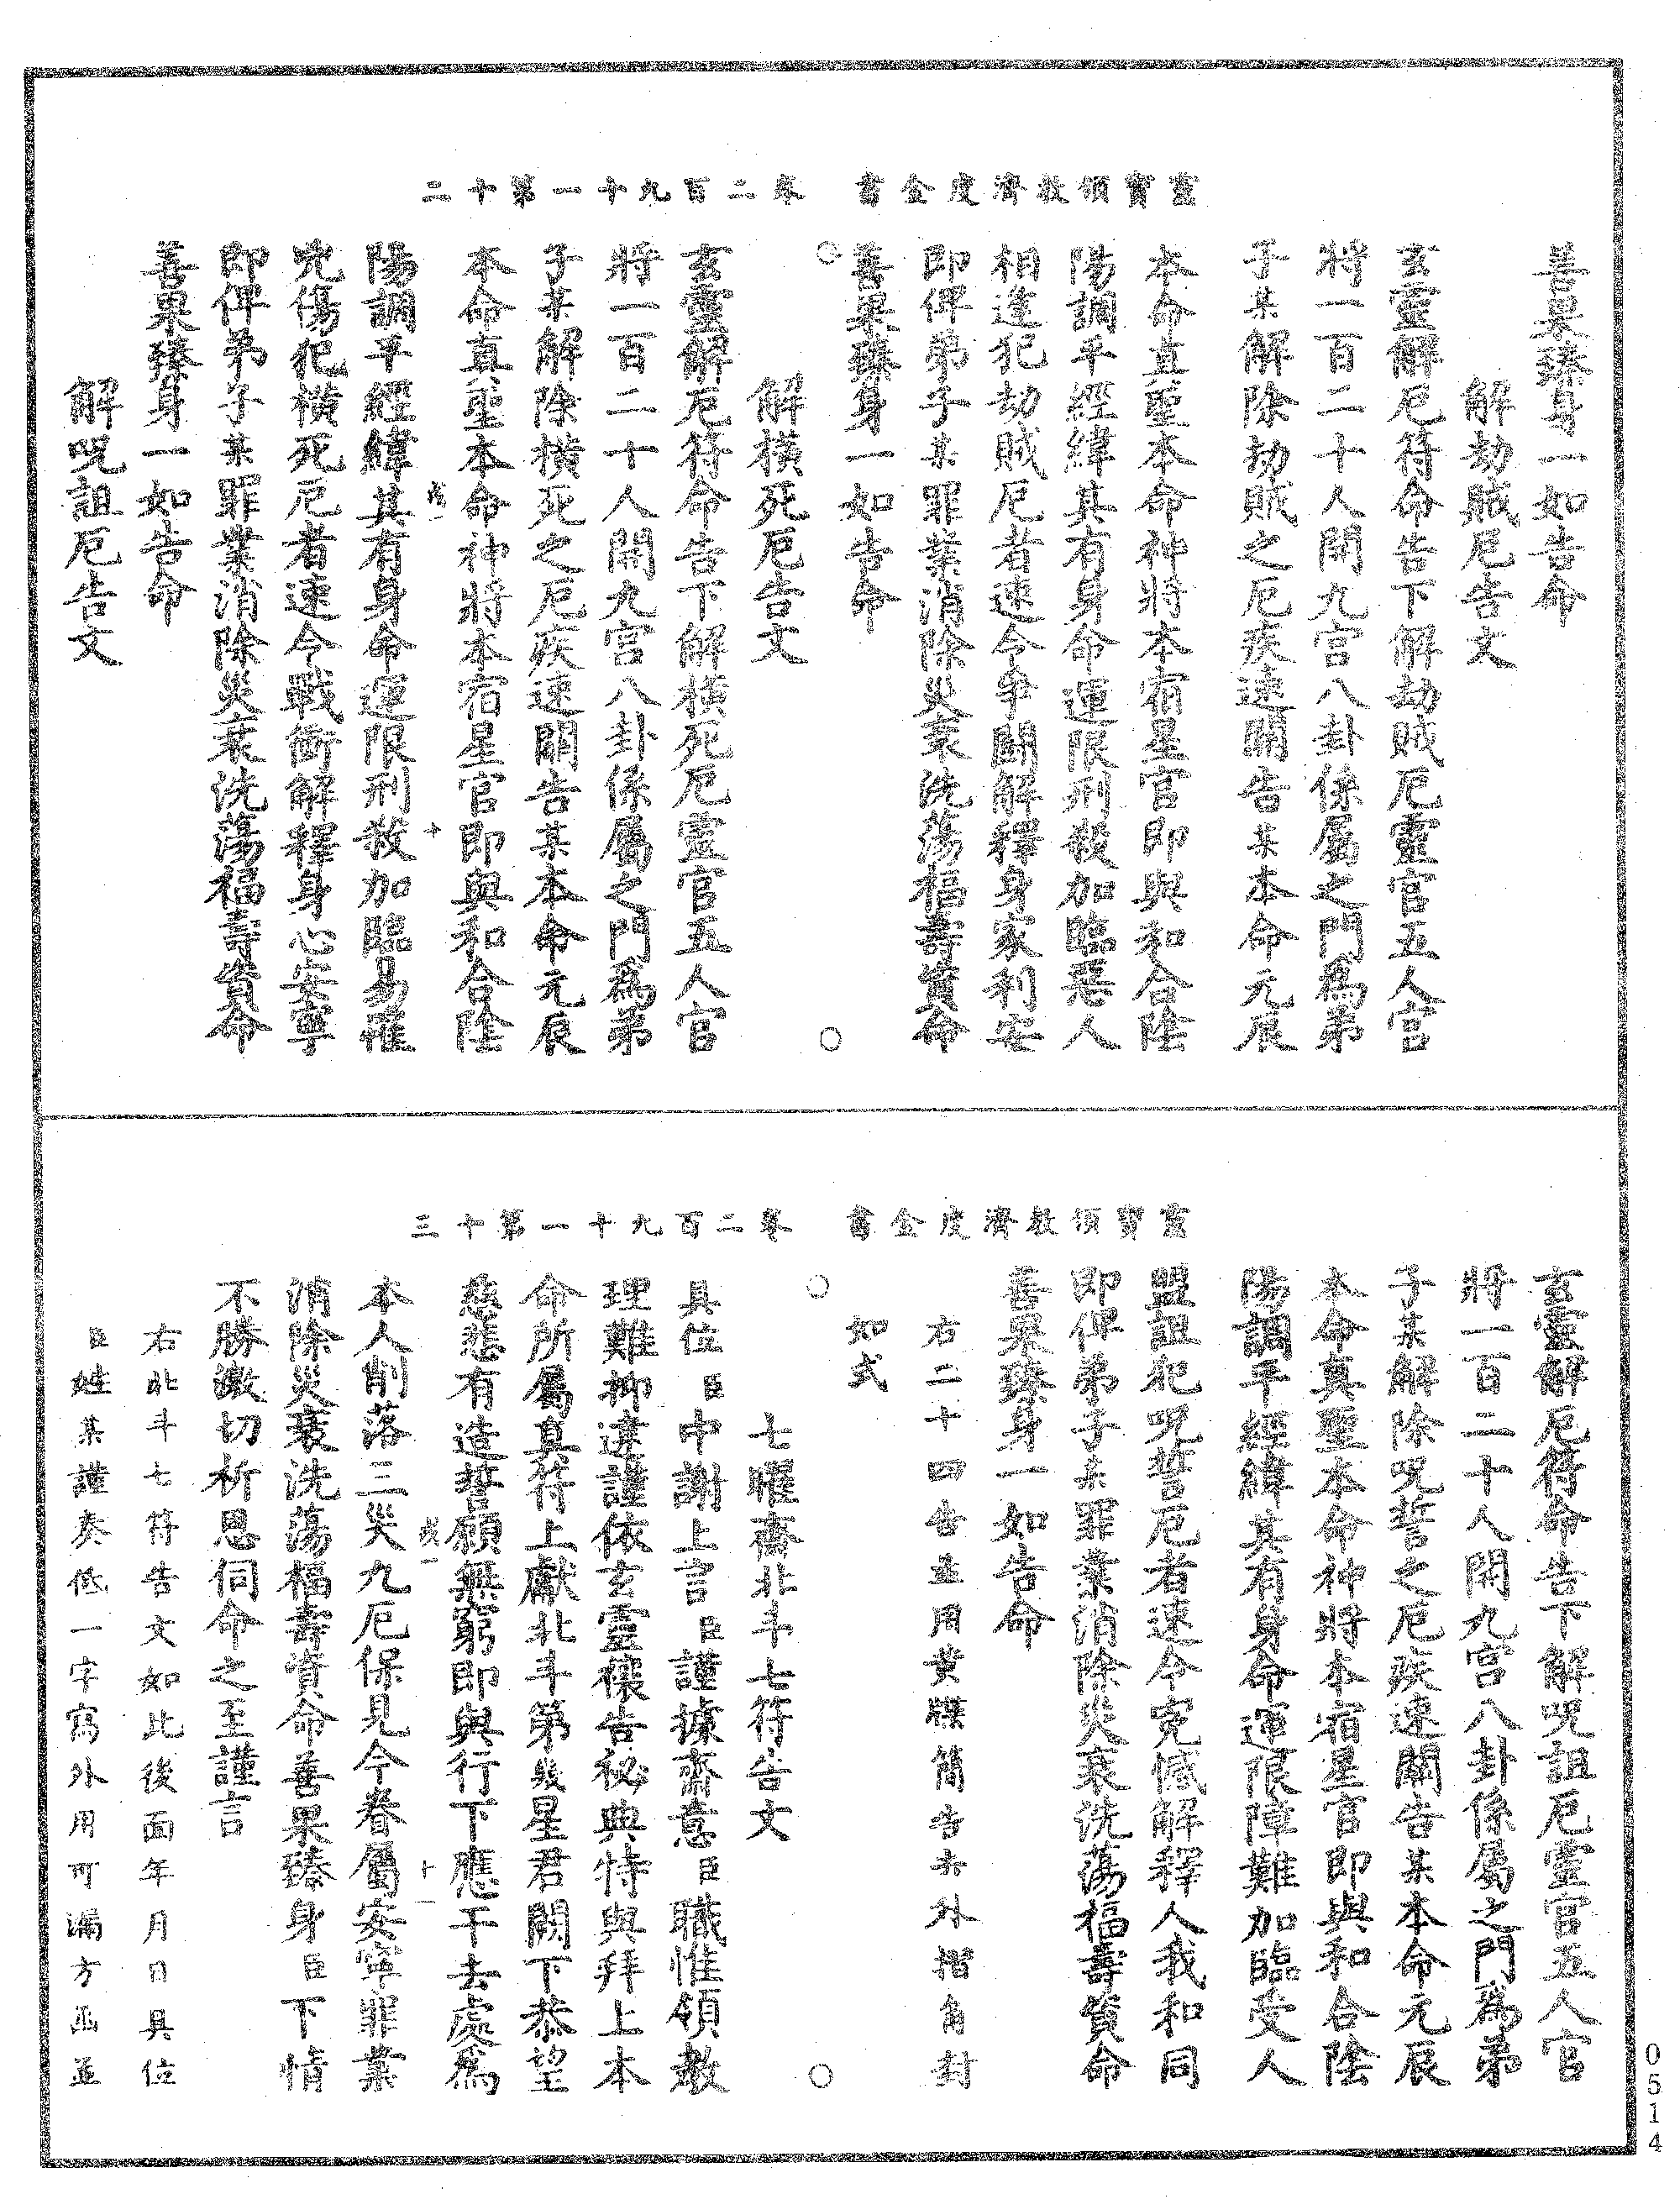 靈寶領教濟度金書　卷二百九十一第十二
善果臻身一如告命
解劫賊厄告文
玄靈解厄符命告下解劫賊厄靈官五人官
將一百二十人開九宮八卦係屬之門為弟
子某解除劫賊之厄疾速關告某本命元辰
本命直聖本命神將本宿星官即與和合陰
陽調平經緯其有身命運限刑殺加臨惡人
相逢犯劫賊厄者速令爭鬬解釋身家利安
即俾弟子某罪業消除災衰洗蕩福壽資命
善果臻身一如告命
解橫死厄告文
玄靈解厄符命告下解橫死厄靈官五人官
將一百二十人開九宮八卦係屬之門為弟
子某解除橫死之厄疾速關告某本命元辰
本命直聖本命神將本宿星官即與和合陰
陽調平經緯其有身命運限刑殺加臨易罹
兇傷犯橫死厄者速令戰衝解釋身心安寧
即俾弟子某罪業消除災衰洗蕩福壽資命
善果臻身一如告命
解呪詛厄告文
靈寶領教濟度金書　卷二百九十一第十三
玄靈解厄符命告下解呪詛厄靈官五人官
將一百二十人開九宮八卦係屬之門為弟
子某解除呪誓之厄疾速關告某本命元辰
本命真聖本命神將本宿星官即與和合陰
陽調平經緯其有身命運限障難加臨受人
盟詛犯呪誓厄者速令寃憾解釋人我和同
即俾弟子某罪業消除災衰洗蕩福壽資命
善果臻身一如告命
右二十四告並用黃牒簡告方外摺角封
如式
七曜齋北斗七符告文
具位臣中謝上言臣謹據齋意臣職惟領教
理難抑違謹依玄靈禳告祕典特與拜上本
命所屬真符上獻北斗第幾星君闕下恭望
慈悲有造誓願無窮即與行下應干去處為
本人削落三災九厄保見今眷屬安寧罪業
消除災衰洗蕩福壽資命善果臻身臣下情
不勝激切祈恩伺命之至謹言
右北斗七符告文如此後面年月日具位
臣姓某謹奏低一字寫外用可漏方函並
0514